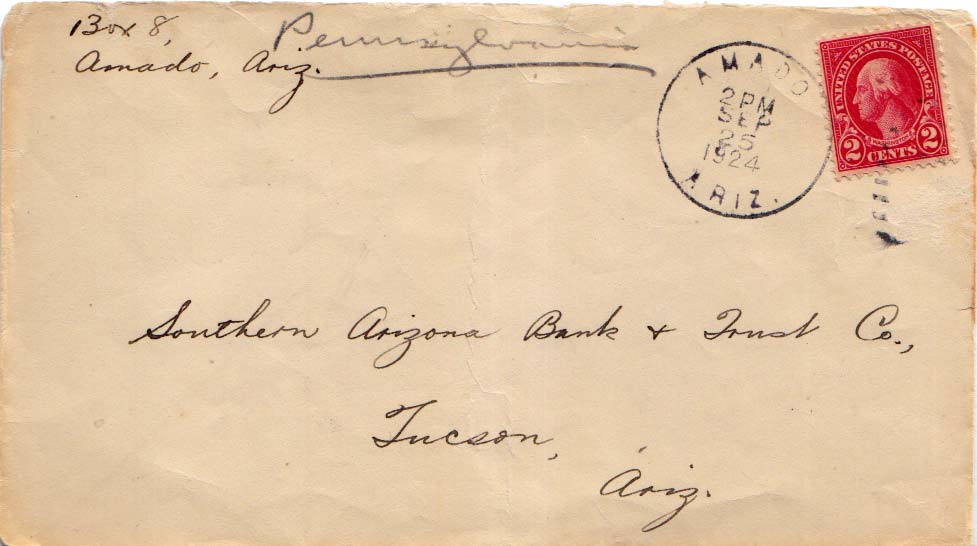 Box 8,
Amado, Ariz.
Pennsylvania
AMADO
2PM
SEP
25
1924
ARIZ.
UNITED STATES POSTAGE
WASHINGTON
2 CENTS 2
Southern Arizona Bank & Trust Co.,
Tucson,
Ariz.